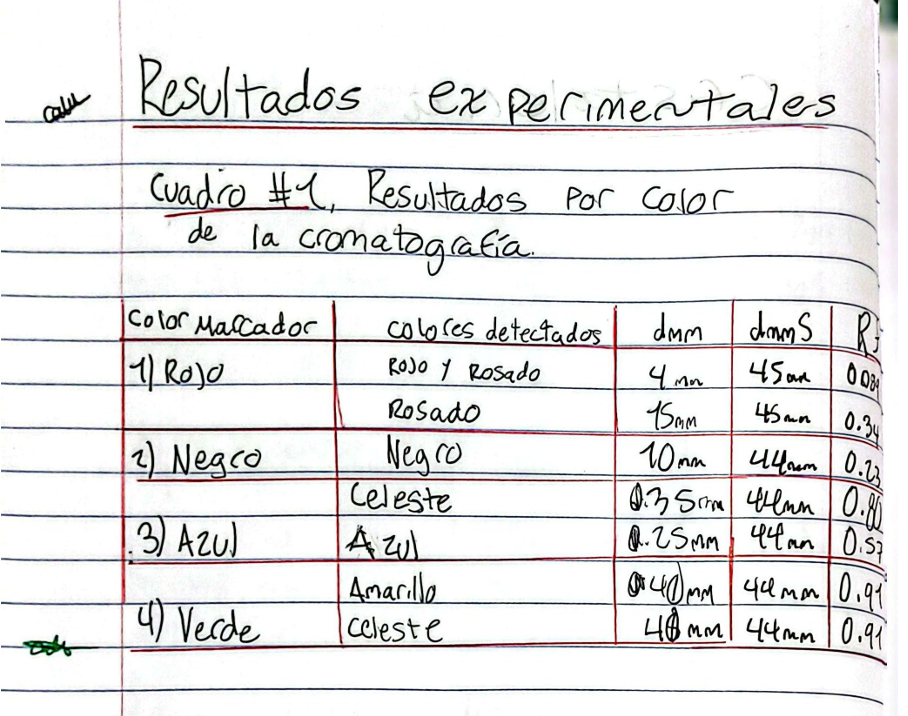 Resultados experimentales
Cuadro #1, Resultados por color
de la cromatografía.
Color Marcador colores detectados dmm dmmS Rf
1) Rojo Rojo y Rosado 4 mm 45mm
Rosado 15mm 45mm 0.34
2) Negro Negro 10mm 44mm 0.23
Celeste 0.35mm 44mm 0.80
3) Azul Azul 0.25mm 44mm 0.57
Amarillo 44mm 0.91
4) Verde celeste mm 44mm 0.91